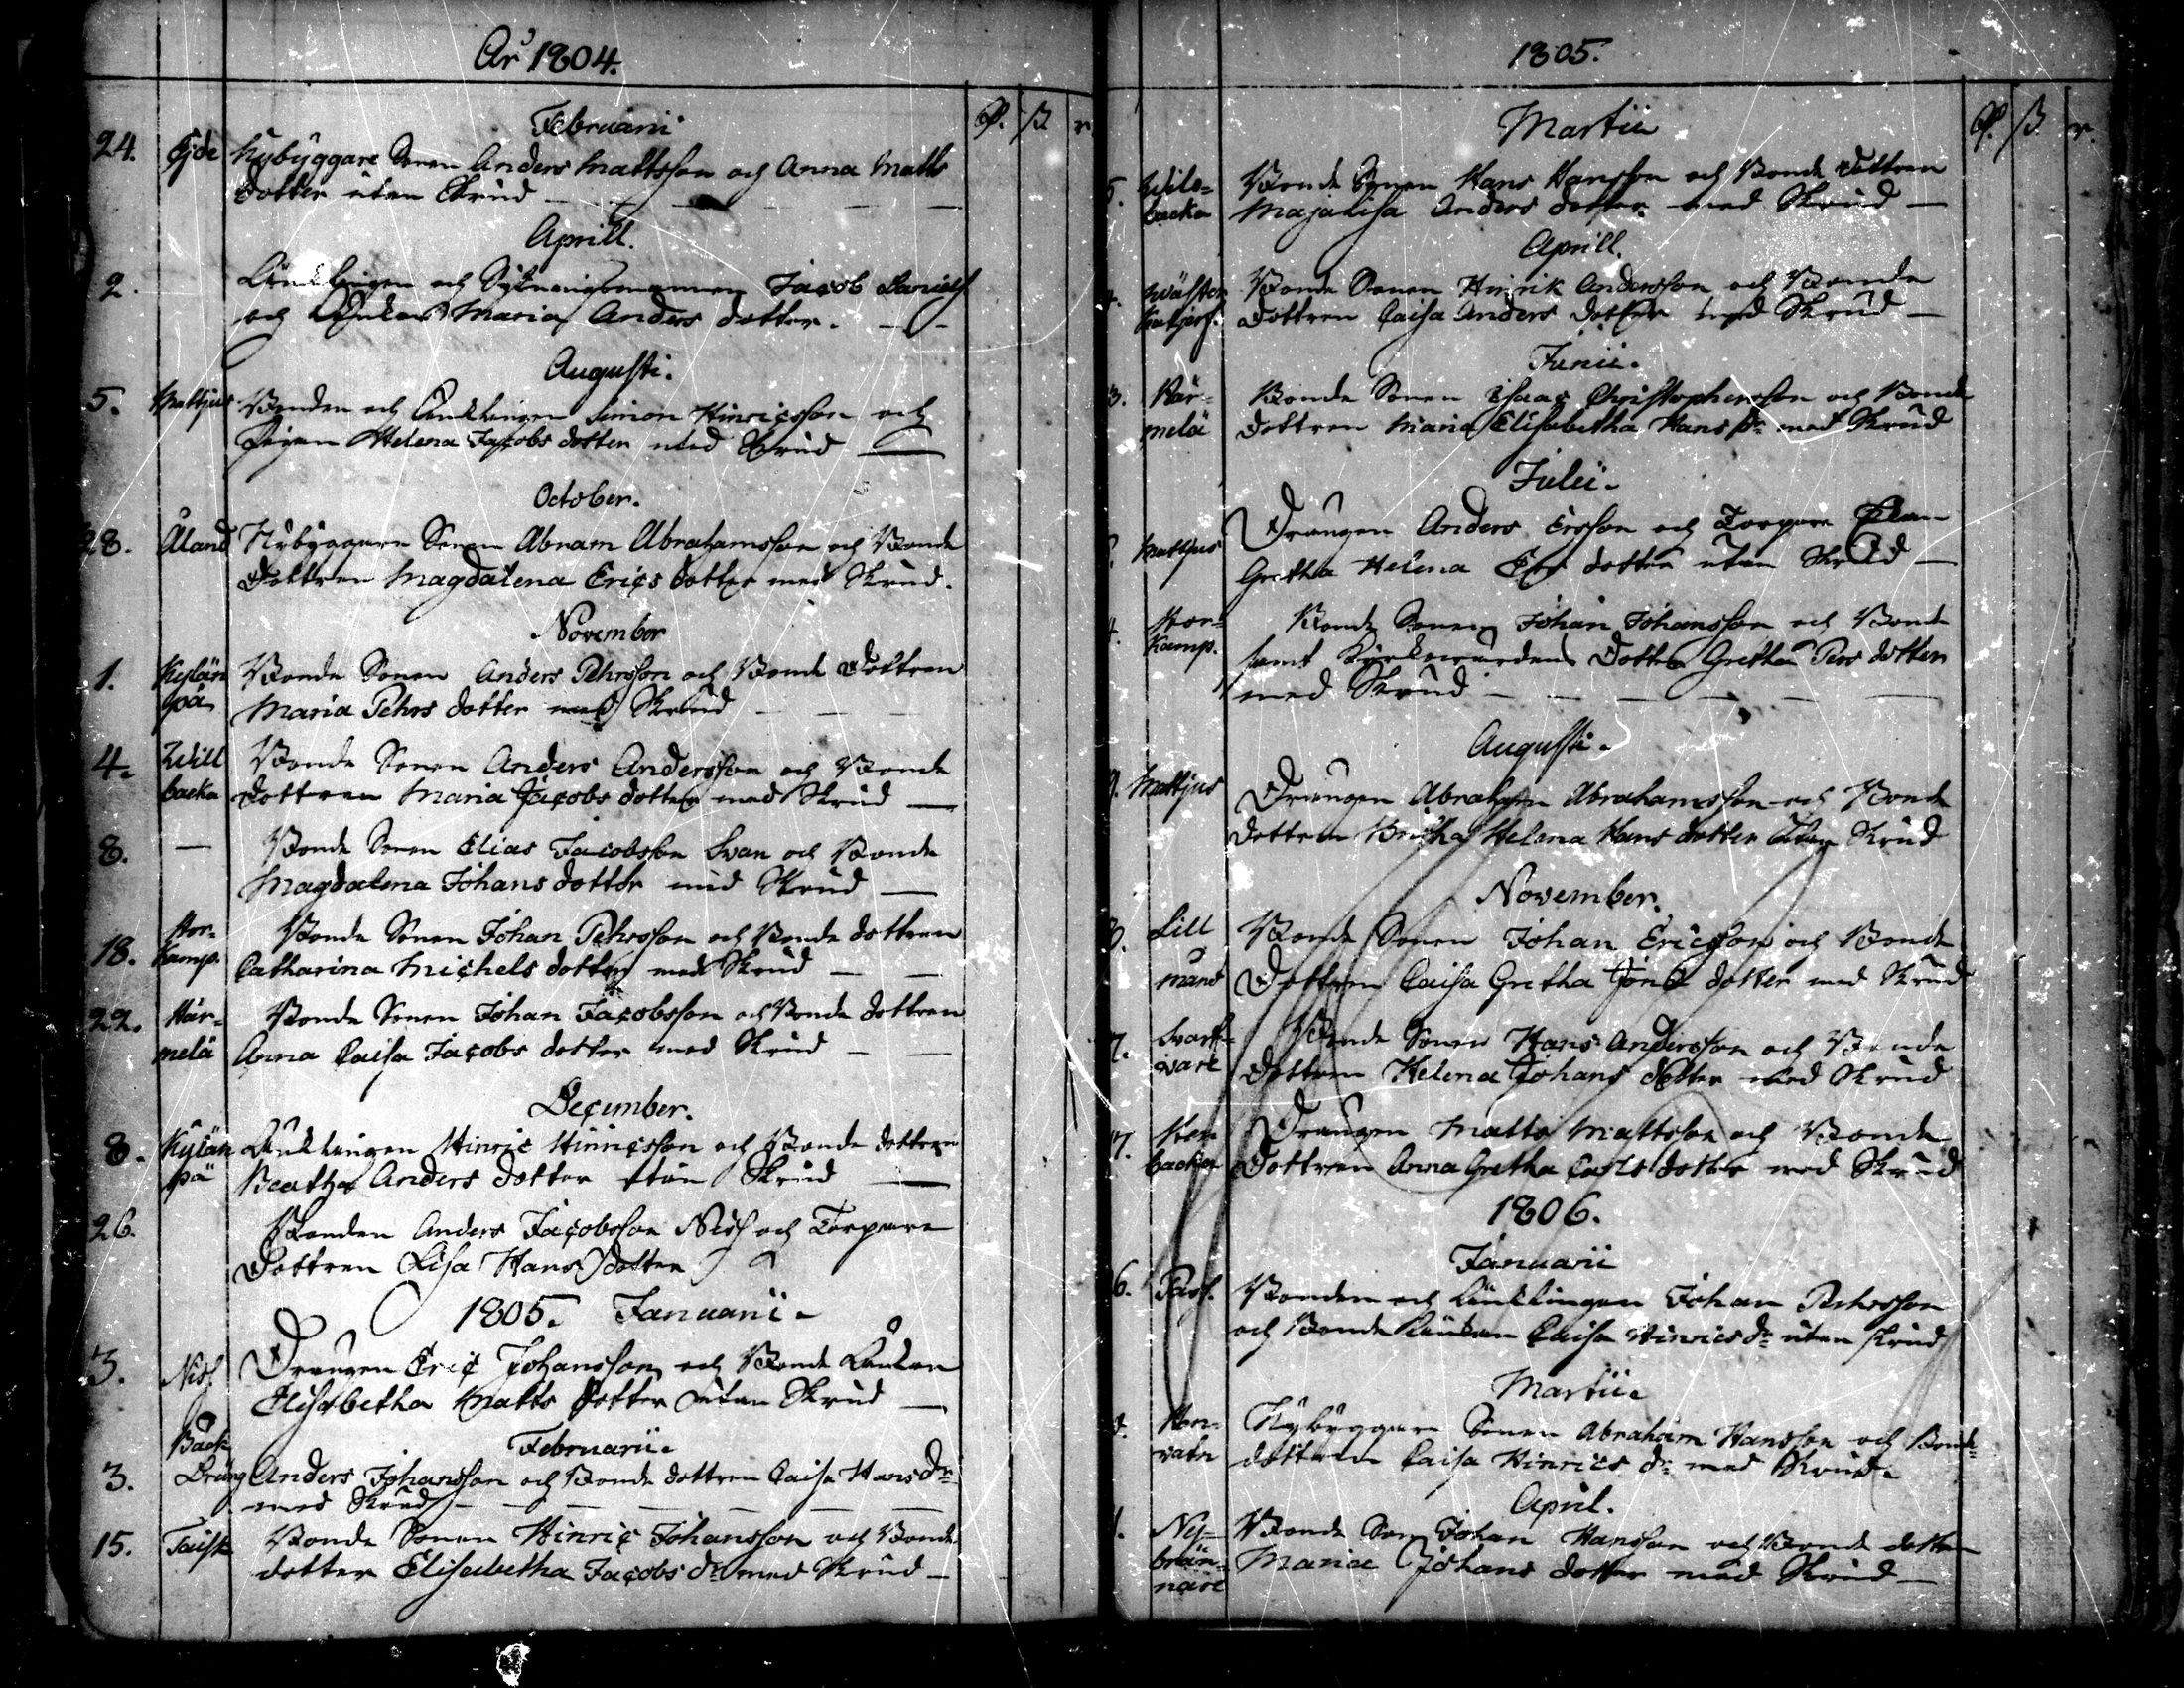 År 1804.
Februarii
24. Ejde Nybyggare Sonen Anders Mattsson och Anna Matts
dotter utan Skrud
Aprill.
2. Änklingen och Jacob Daniels
och Änkan Maria Anders dotter.
Augusti.
5. Mattjus Bonden och Änklingen Simon Hinricsson och
Pigan Helena Jacobs dotter med Skrud
October.
28. Åland Nybyggare Sonen Abram Abrahamsson och Bonde
Dottren Magdalena Erics dotter med Skrud.
November
1. Kylän Bonde Sonen Anders Pehrsson och Bonde Dottren
pä Maria Pehrs dotter med Skrud
4. Will Bonde Sonen Anders Andersson och Bonde
backa Dottren Maria Jacobs dotter med Skrud
8. — Bonde Sonen Elias Jacobsson Svan och Bonde
Magdalena Johans dotter med Skrud
18. Stor- Bonde Sonen Johan Pehrsson och Bonde dottren
Kamp. Catharina Michels dotter med Skrud
22. Här- Bonde Sonen Johan Jacobsson och Bonde dottren
melä Anna Caisa Jacobs dotter med Skrud
December.
8. Kylän Änklingen Hinric Hinricsson och Bonde dottren
pä Beatha Anders dotter utan Skrud
26. Bonden Anders Jacobsson Niss och Torpare
Dottren Lisa Hans dotter
1805. Januarii
3. Niss Drängen Eric Johansson och Bonde Änkan
Elisabetha Matts dotter utan Skrud
Back Februarii
3. Dräng Anders Johansson och Bonde dottren Caisa Hans dr
med Skrud
15. Taisk Bonde Sonen Hinric Johansson och Bonde
dotter Elisabetha Jacobs dr med Skrud
1805.
Martii
5. Wils- Bonde Sonen Hans Hansson och Bonde dottren
backa Maja Lisa Anders dotter med Skrud
Aprill.
4. Wäster Bonde Sonen Hinrik Andersson och Bonde
dottren Caisa Anders dotter med Skrud
Junii.
3. Här- Bonde Sonen Isaac Christophersson och Bonde
melä dottren Maria Elisabetha Hans dr med Skrud
Julii.
Mattjus Drängen Anders Ersson och Torpare Änkan
Gretha Helena Ers dotter utan Skrud
4. Stor- Bonde Sonen Johan Johansson och Bonde
Kamp. samt Kyrkowärdens Dotter Gretha Pers dotter
med Skrud
Augusti.
9. Mattjus Drängen Abraham Abrahamsson och Bonde
dottren Britha Helena Hans dotter utan Skrud
November.
Lill Bonde Sonen Johan Ericsson och Bonde
månd Dottren Caisa Gretha Jons dotter med Skrud
7. Svart- Bonde Sonen Hans Andersson och Bonde
vare Dottren Helena Johans dotter med Skrud
17. Drängen Matts Mattsson och Bonde
backa Dottren Anna Gretha Carls dotter med Skrud
1806.
Januarii
6. Pass. Bonden och Änklingen Johan Pehrsson
och Bonde Änkan Caisa Hinrics dr utan skrud
Martii
Nybyggare Sonen Abraham Hansson och Bonde-
vatn dottren Caisa Hinrics dr med Skrud.
April.
1. Ny- Bonde Son Johan Hansson och Bonde dotter
brän- Maria Johans dotter med Skrud
nare